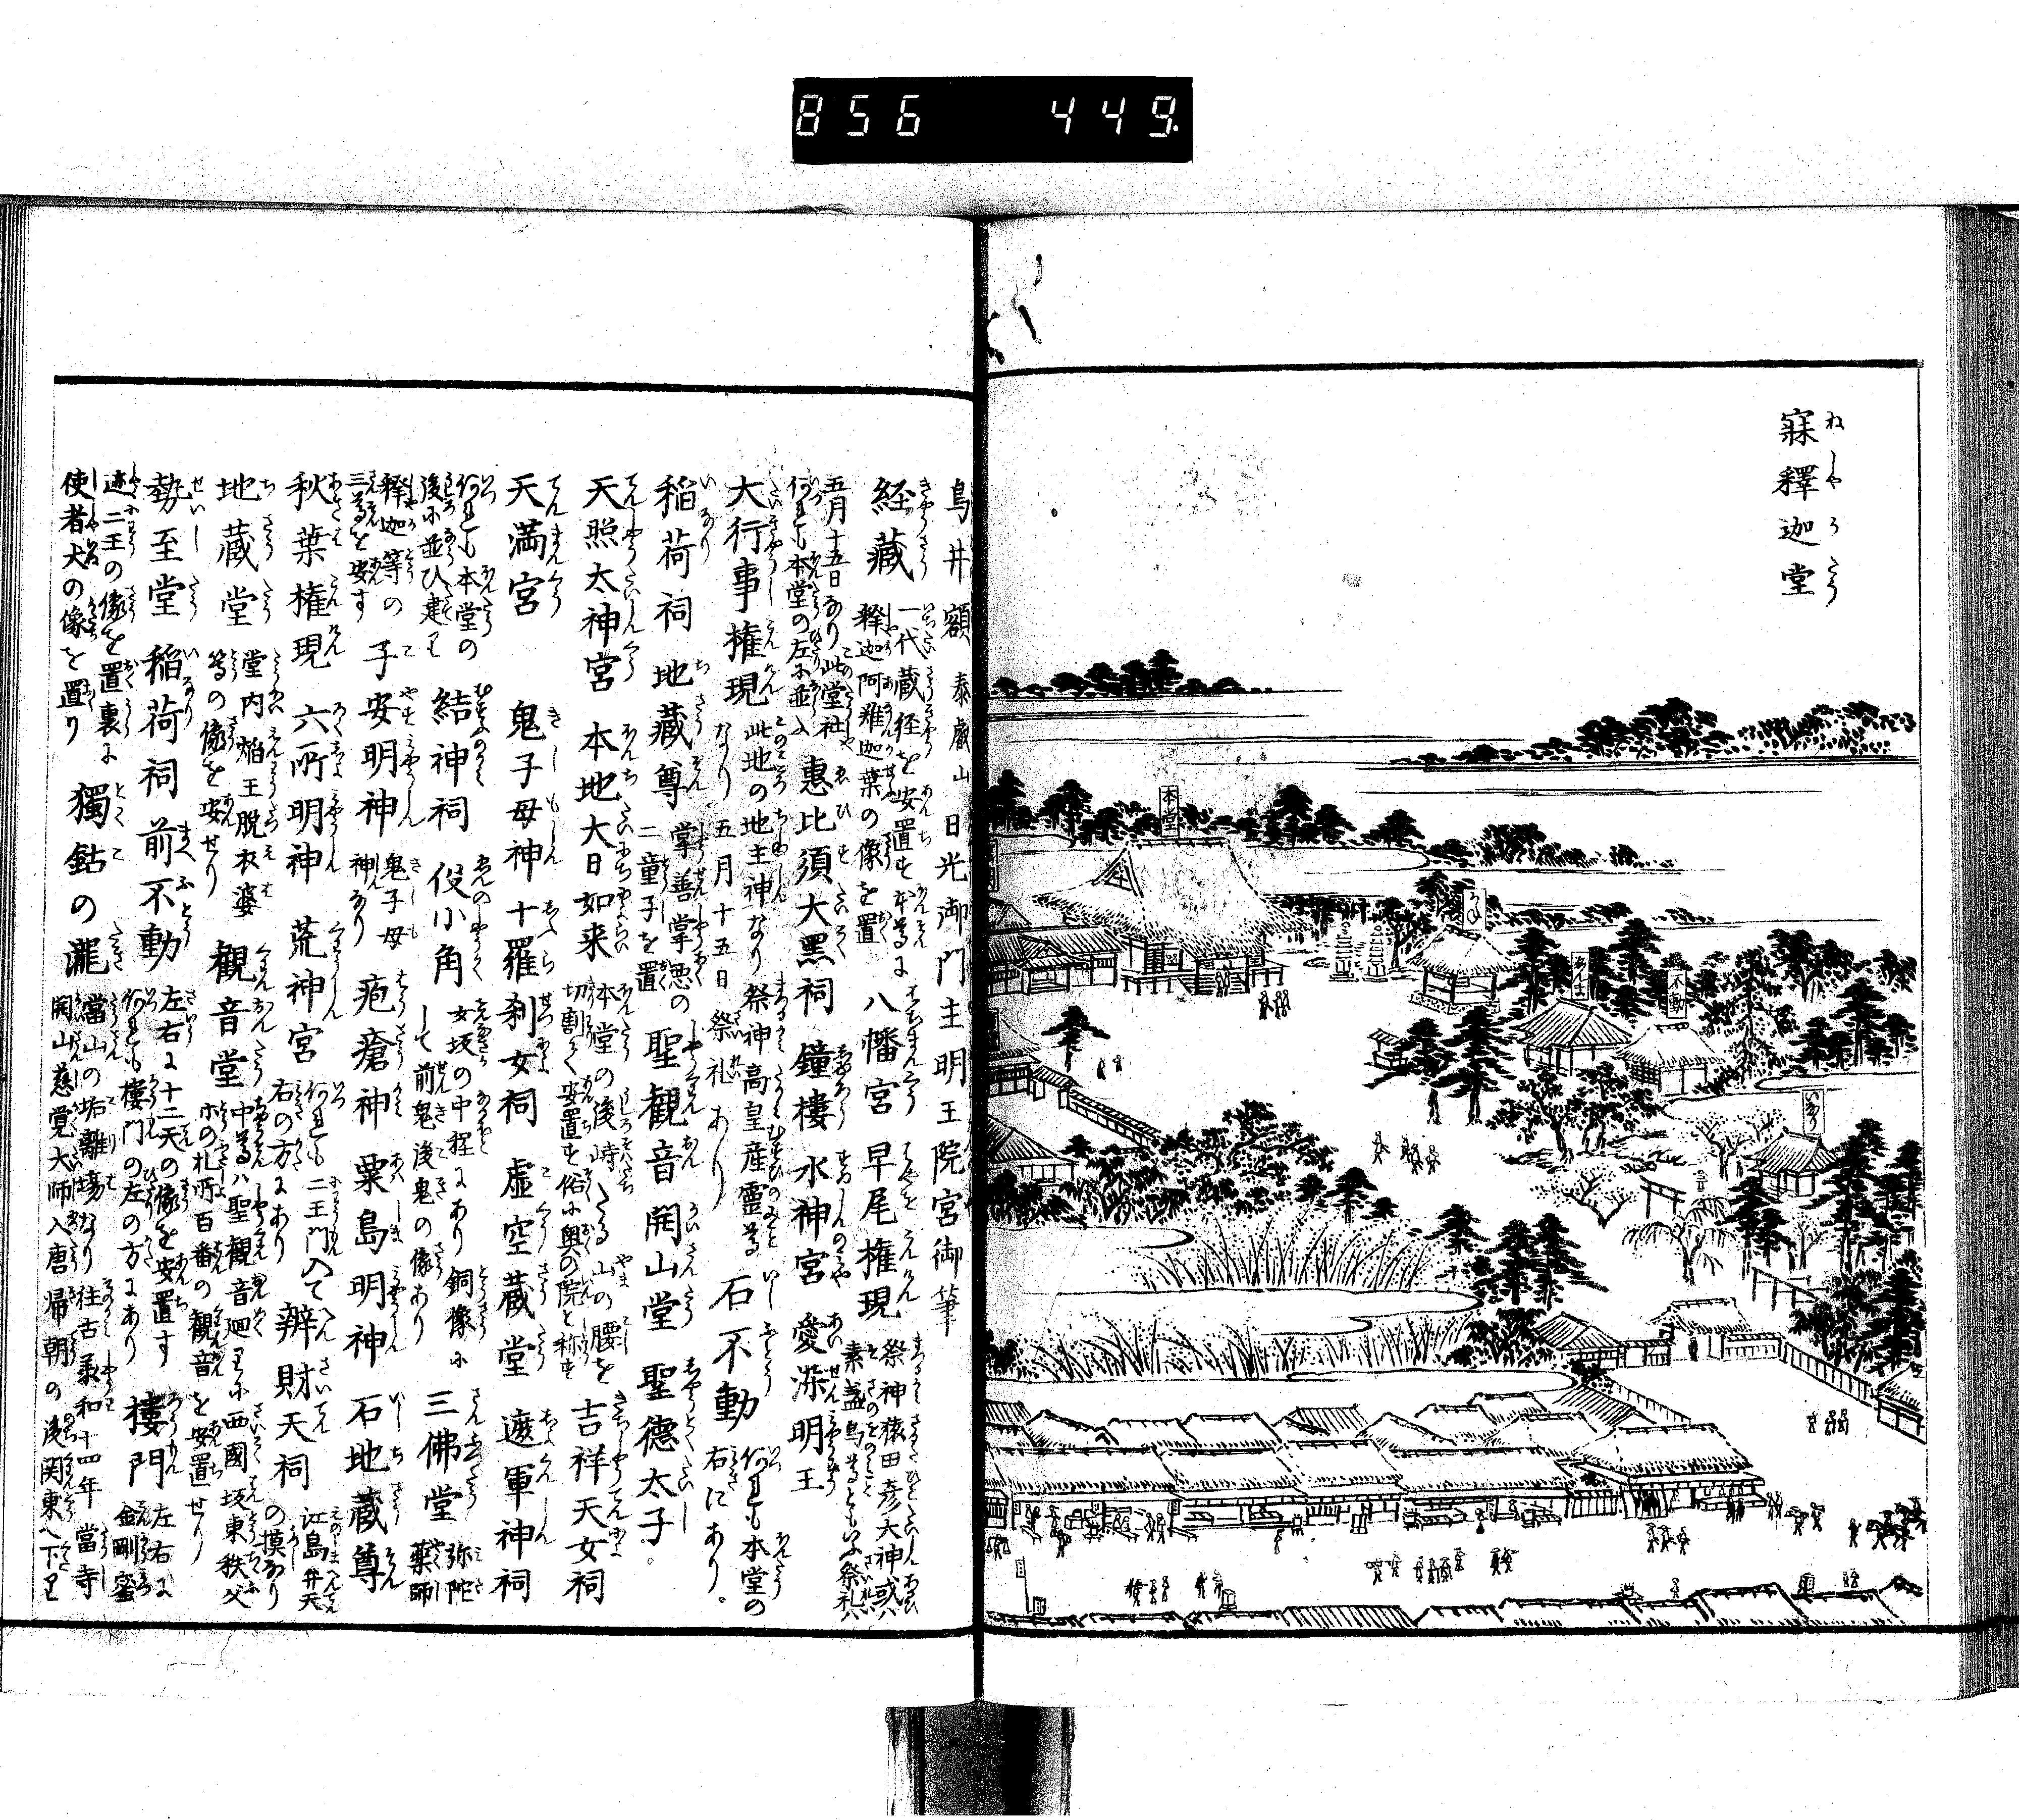 856 449.
寐釋迦堂
本堂
不動
いなり
鳥井額 泰叡山 日光御門主明王院宮御筆
経藏 一代蔵経を安置す本尊は
釋迦阿難迦葉の像を置
八幡宮 早尾権現 祭神猿田彦大神或ハ
素盞烏尊ともいふ祭礼ハ
五月十五日なり此堂社
何れも本堂の左に並ふ
惠比須大黒祠 鐘樓 水神宮 愛染明王
大行事権現 此地の地主神なり 祭神高皇産靈尊
なり 五月十五日 祭礼あり
石不動 何れも本堂の
右にあり。
稲荷祠 地蔵尊 掌善掌悪の
二童子を置
聖観音 開山堂 聖德太子。
天照太神宮 本地大日如来 本堂の後峙たる山の腰を
切割て安置す俗に奥の院と称す
吉祥天女祠
天満宮 鬼子母神 十羅刹女祠 虚空蔵堂 遊軍神祠
何れも本堂の
後に並ひ建り
結神祠 役小角 女坂の中程にあり 銅像に
して前鬼後鬼の像あり
三佛堂 弥陀
薬師
釋迦等の
三尊を安す
子安明神 鬼子母
神なり
疱瘡神 粟島明神 石地蔵尊
秋葉権現 六所明神 荒神宮 何れも二王門入て
右の方にあり
辨財天祠 江島弁天
の摸なり
地蔵堂 堂内焔王脱衣婆
等の像を安せり
観音堂 中尊ハ聖観音廻りに西國坂東秩父
の札所百番の観音を安置せり
勢至堂 稲荷祠 前不動 左右に十二天の像を安置す
何れも樓門の左の方にあり
樓門 左右に
金剛蜜
迹二王の像を置裏に
使者犬の像を置り
獨鈷の瀧 當山の垢離場なり往古承和十四年當寺
開山慈覚大師入唐帰朝の後関東へ下り